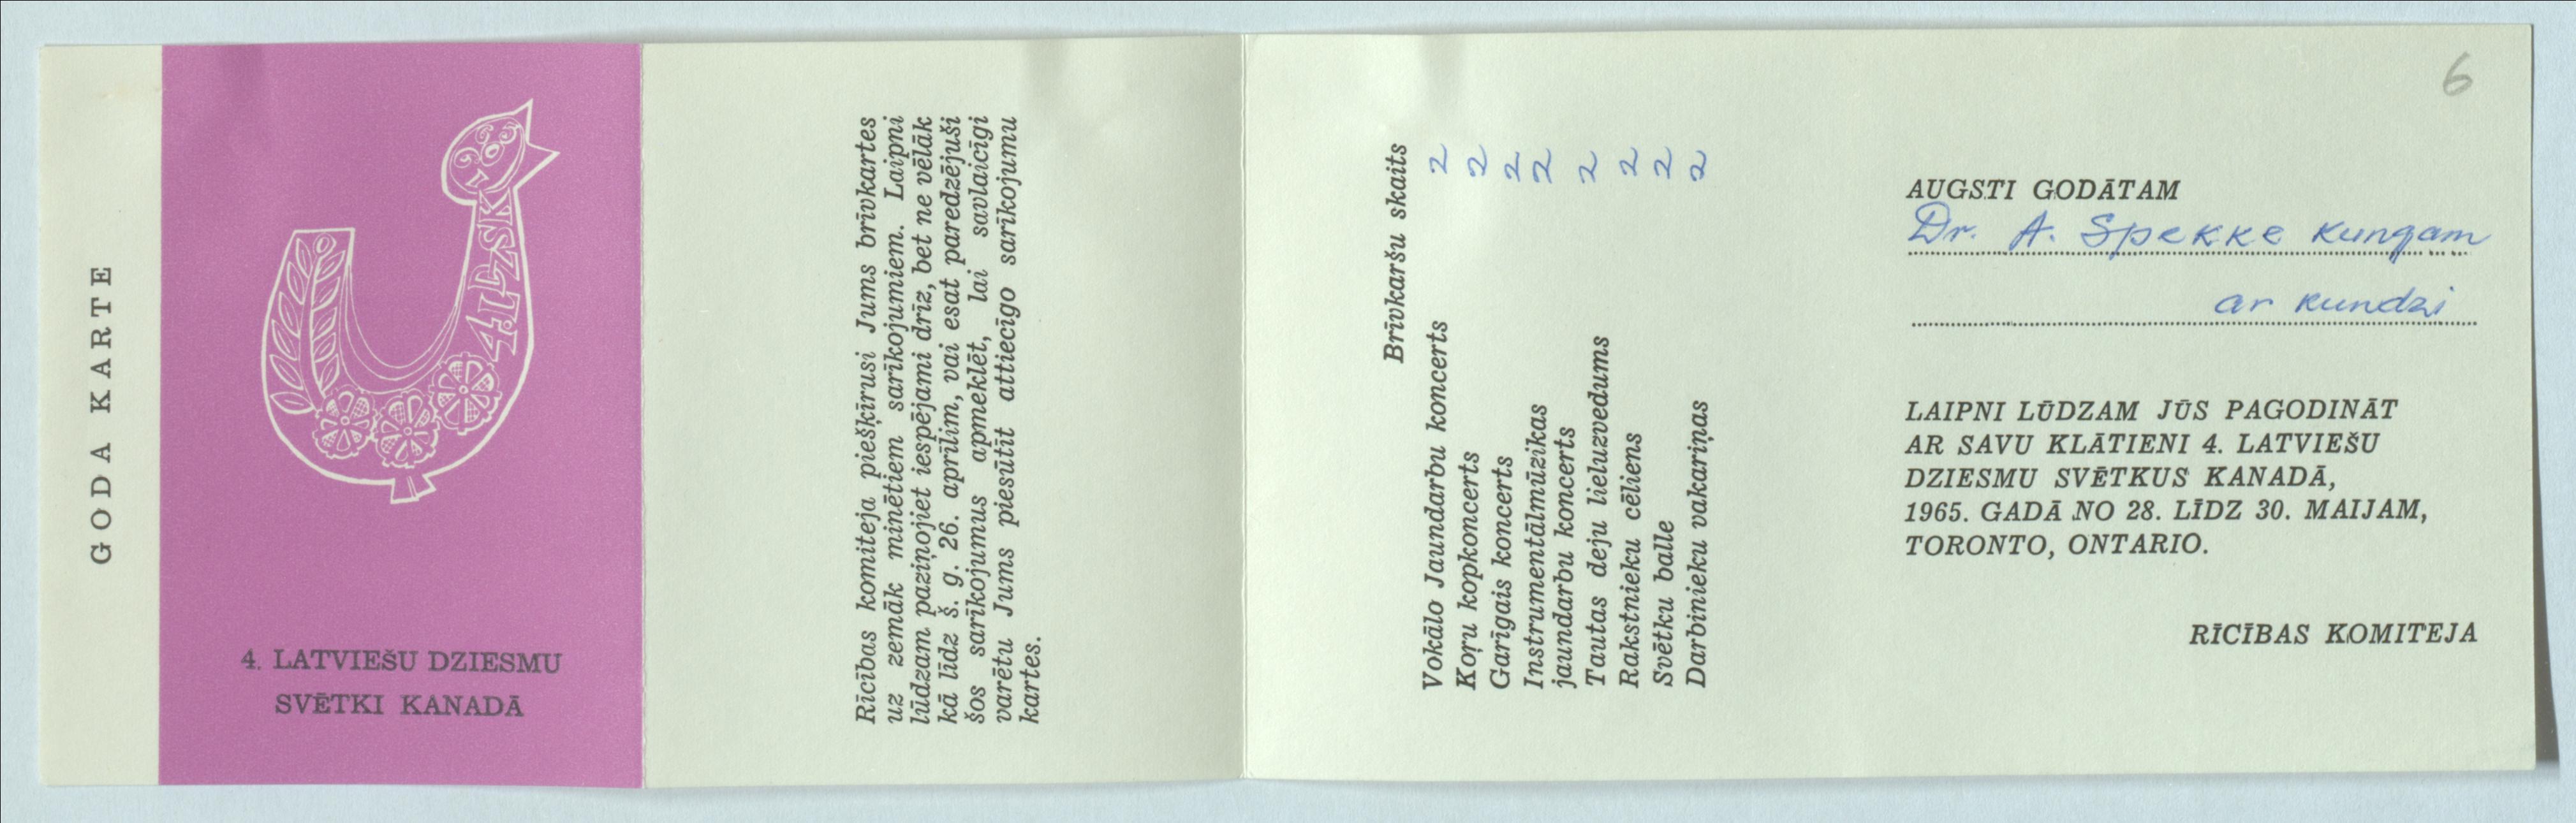 GODA KARTE
1965
4.LDZSK
4. LATVIEŠU DZIESMU
SVĒTKI KANADĀ
Rīcības komiteja piešķīrusi Jums brīvkartes
uz zemāk minētiem sarīkojumiem. Laipni
lūdzam paziņojiet iespējami drīz, bet ne vēlāk
kā līdz š. g. 26. aprīlim, vai esat paredzējuši
šos sarīkojumus apmeklēt, lai savlaicīgi
varētu Jums piesūtīt attiecīgo sarīkojumu
kartes.
Brīvkaršu skaits
Vokālo Jaundarbu koncerts 2
Koŗu kopkoncerts 2
Garīgais koncerts 2
Instrumentālmūzikas 2
jaundarbu koncerts
Tautas deju lieluzvedums 2
Rakstnieku cēliens 2
Svētku balle 2
Darbinieku vakariņas 2
6
AUGSTI GODĀTAM
Dr. A. Spekke kungam
ar kundzi
LAIPNI LŪDZAM JŪS PAGODINĀT
AR SAVU KLĀTIENI 4. LATVIEŠU
DZIESMU SVĒTKUS KANADĀ,
1965. GADĀ NO 28. LĪDZ 30. MAIJAM,
TORONTO, ONTARIO.
RĪCĪBAS KOMITEJA